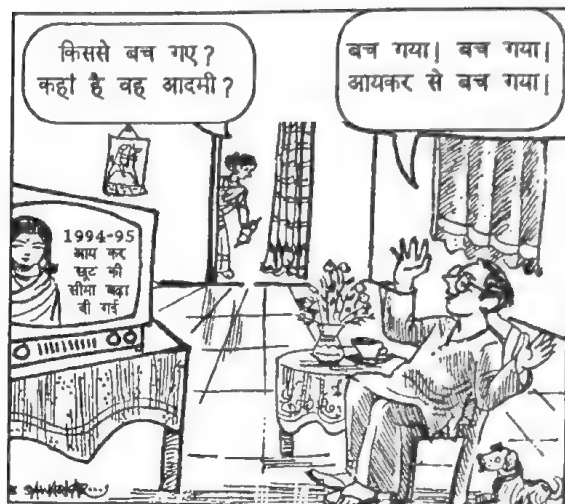 किससे बच गए?
कहां है वह आदमी?
बच गया। बच गया।
आयकर से बच गया।
1994-95
आय कर
छूट की
सीमा बढ़ा
दी गई